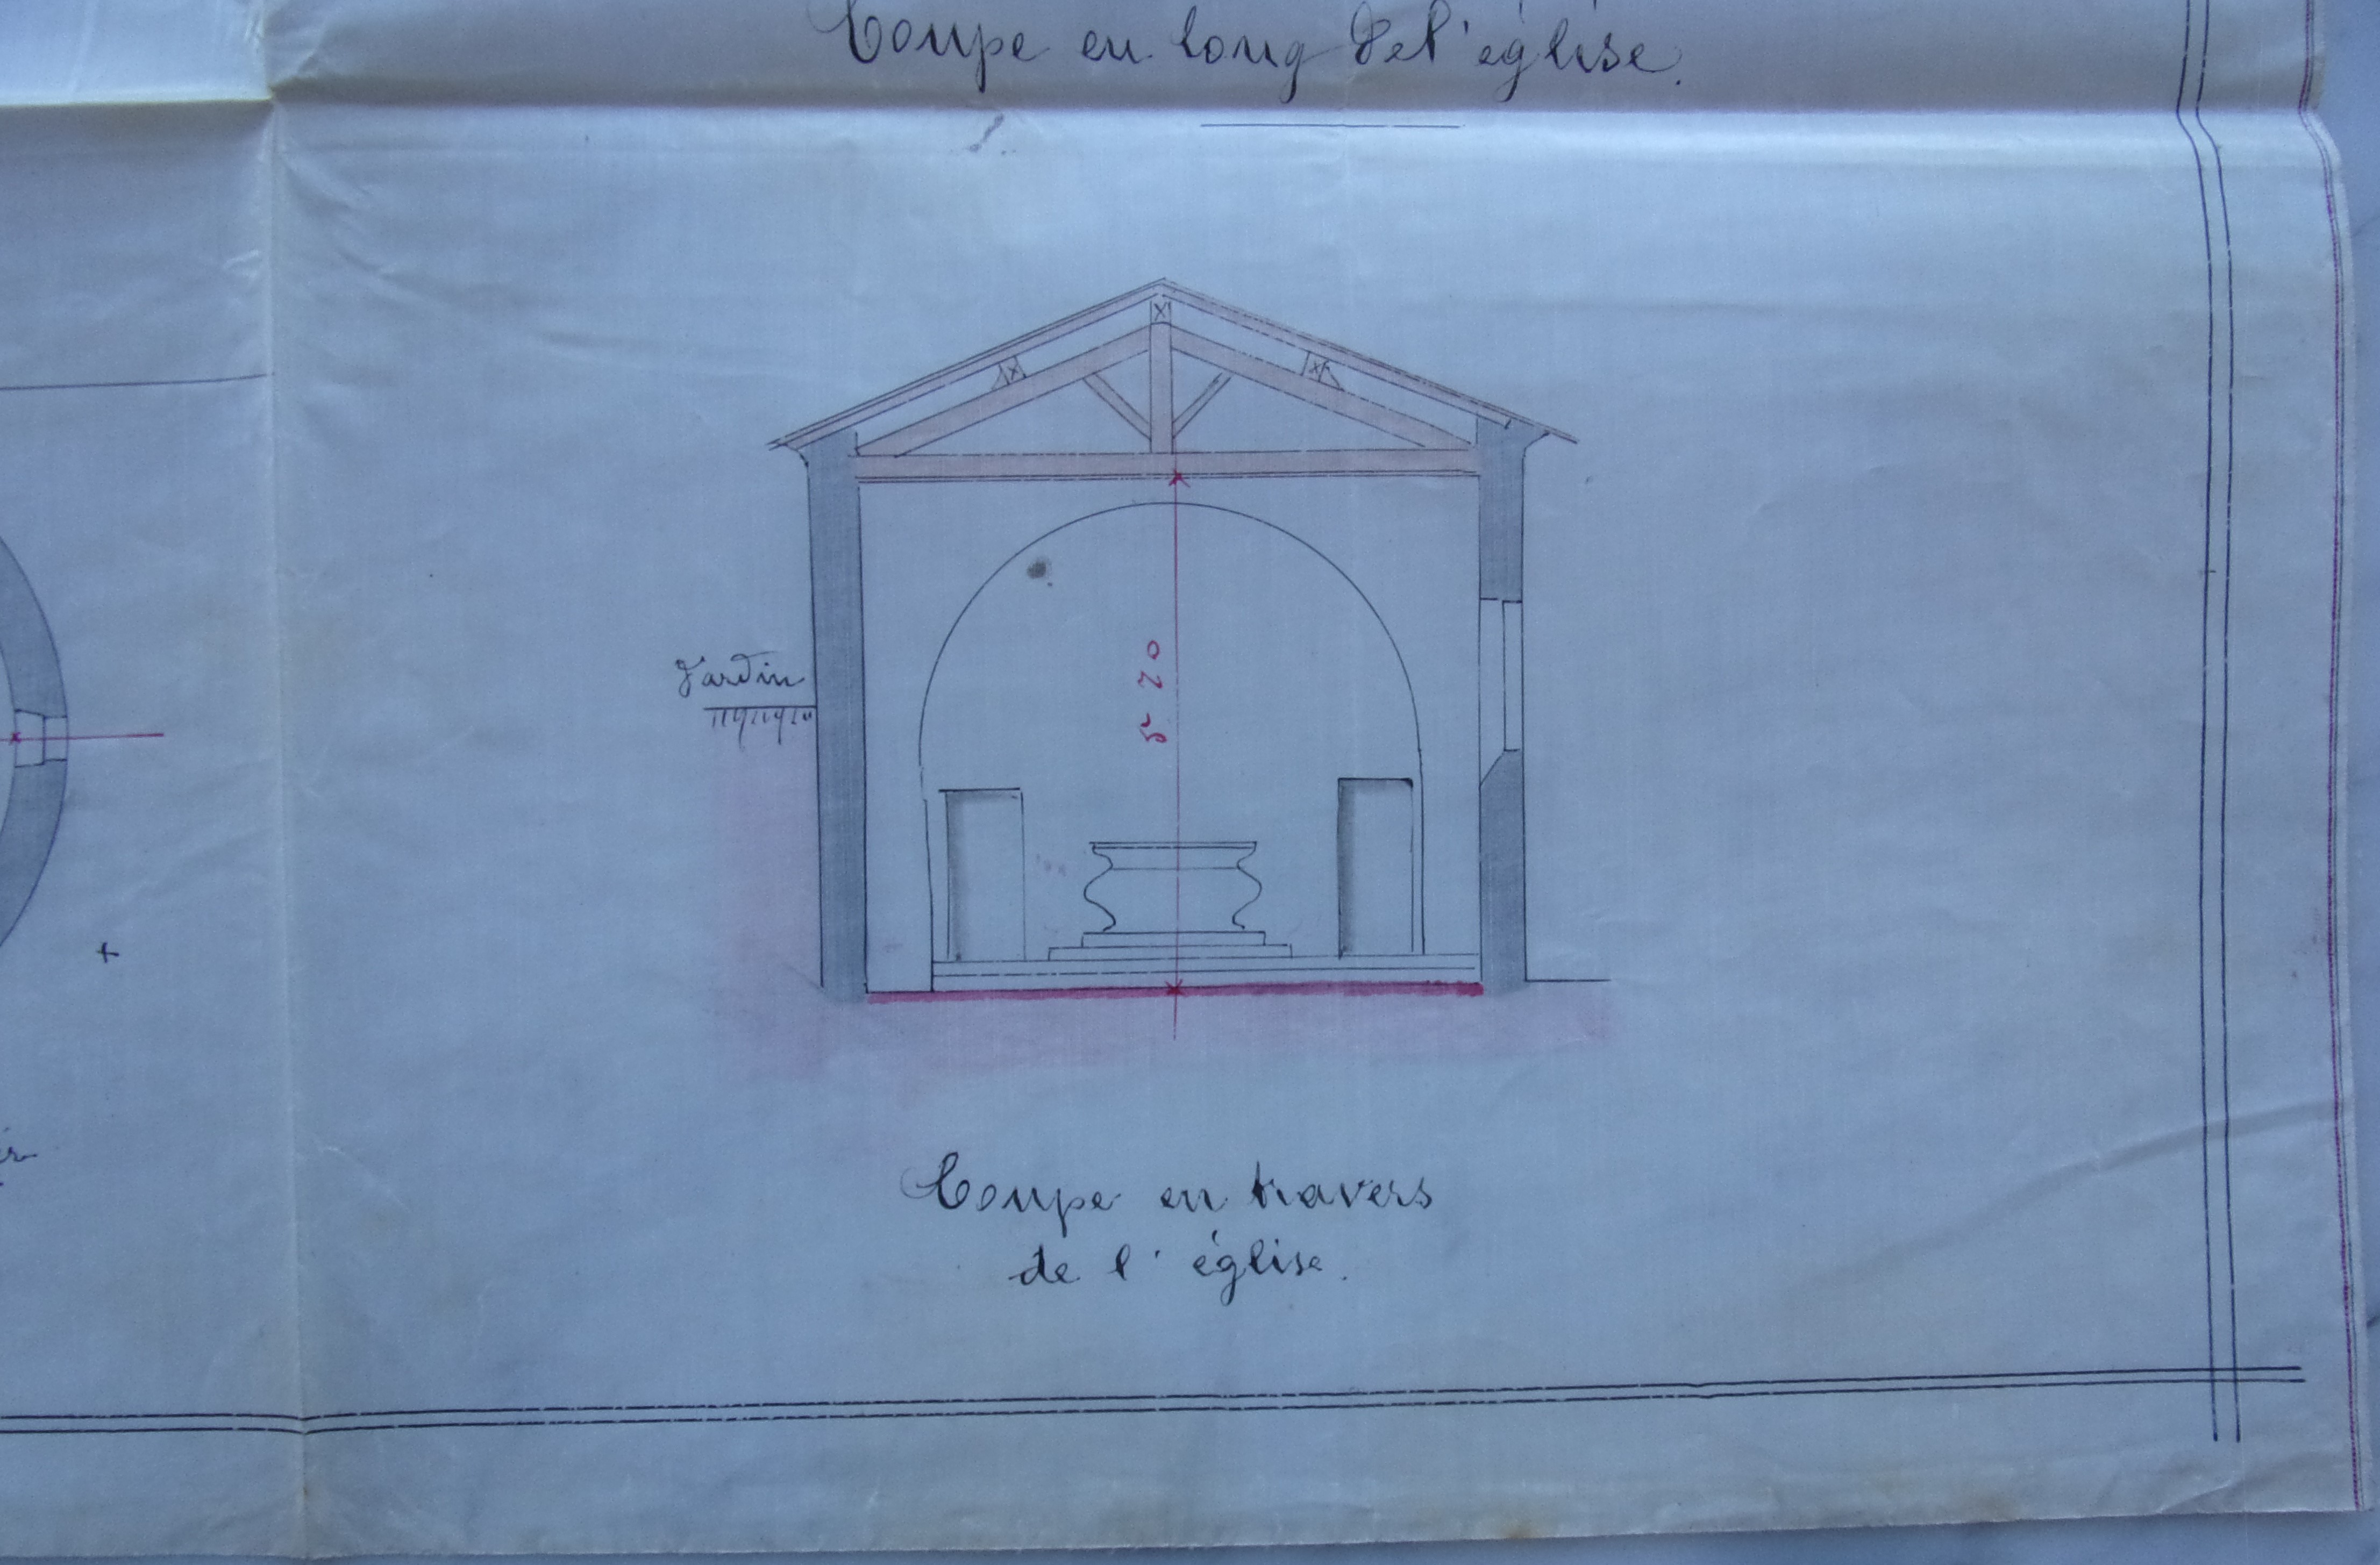 Coupe en long de l'église.
Jardin
5 20
Coupe en travers
de l'église.